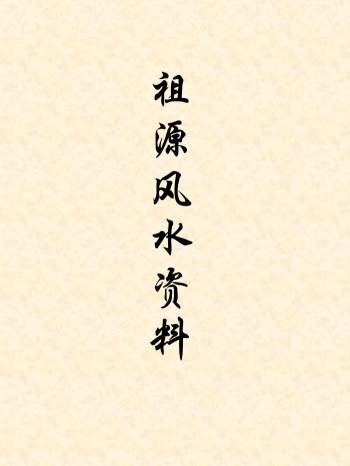 祖源风水资料